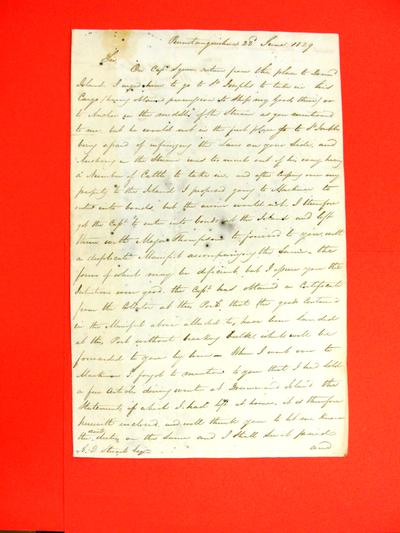 Penetanguishene 22d June 1829
Sir
On Capt Squire return from this place to Drumd
Island I urged him to go to St Josephs to take in his
Cargo (having obtained permission to Ship my Goods there) or
to Anchor in the middle of the Stream as you mentioned
to me but he would not in the first place go to St Josephs
being afraid of infringing the Laws on your Side, and
Anchoring in the Stream was too much out of his way having
a Number of Cattle to take in, and after Carrying over my
property to the Island I proposed going to Mackinac to
enter into bonds, but the crews would not I therefore
got the Capt to enter into bonds at the Island and left
them with Major Thompson to forward to you with
a duplicate Manifest accompanying the Same, the
form of which may be deficient but I assure you the
Intentions were good, the Capt has obtained a Certificate
from the Collector at this Port, that the goods Contained
in the Manifest above alluded to, have been landed
at this Port without breaking bulk which will be
forwarded to you by him — When I was over to
Mackinac I forgot to mention to you that I had sold
a few Articles during winter at Drummond Island the
Statement of which I had left at home. it is therefore
herewith inclosed, and will thank you to let me know
the duties on the Same and I shall send
and
A. D. Steuart Esqr